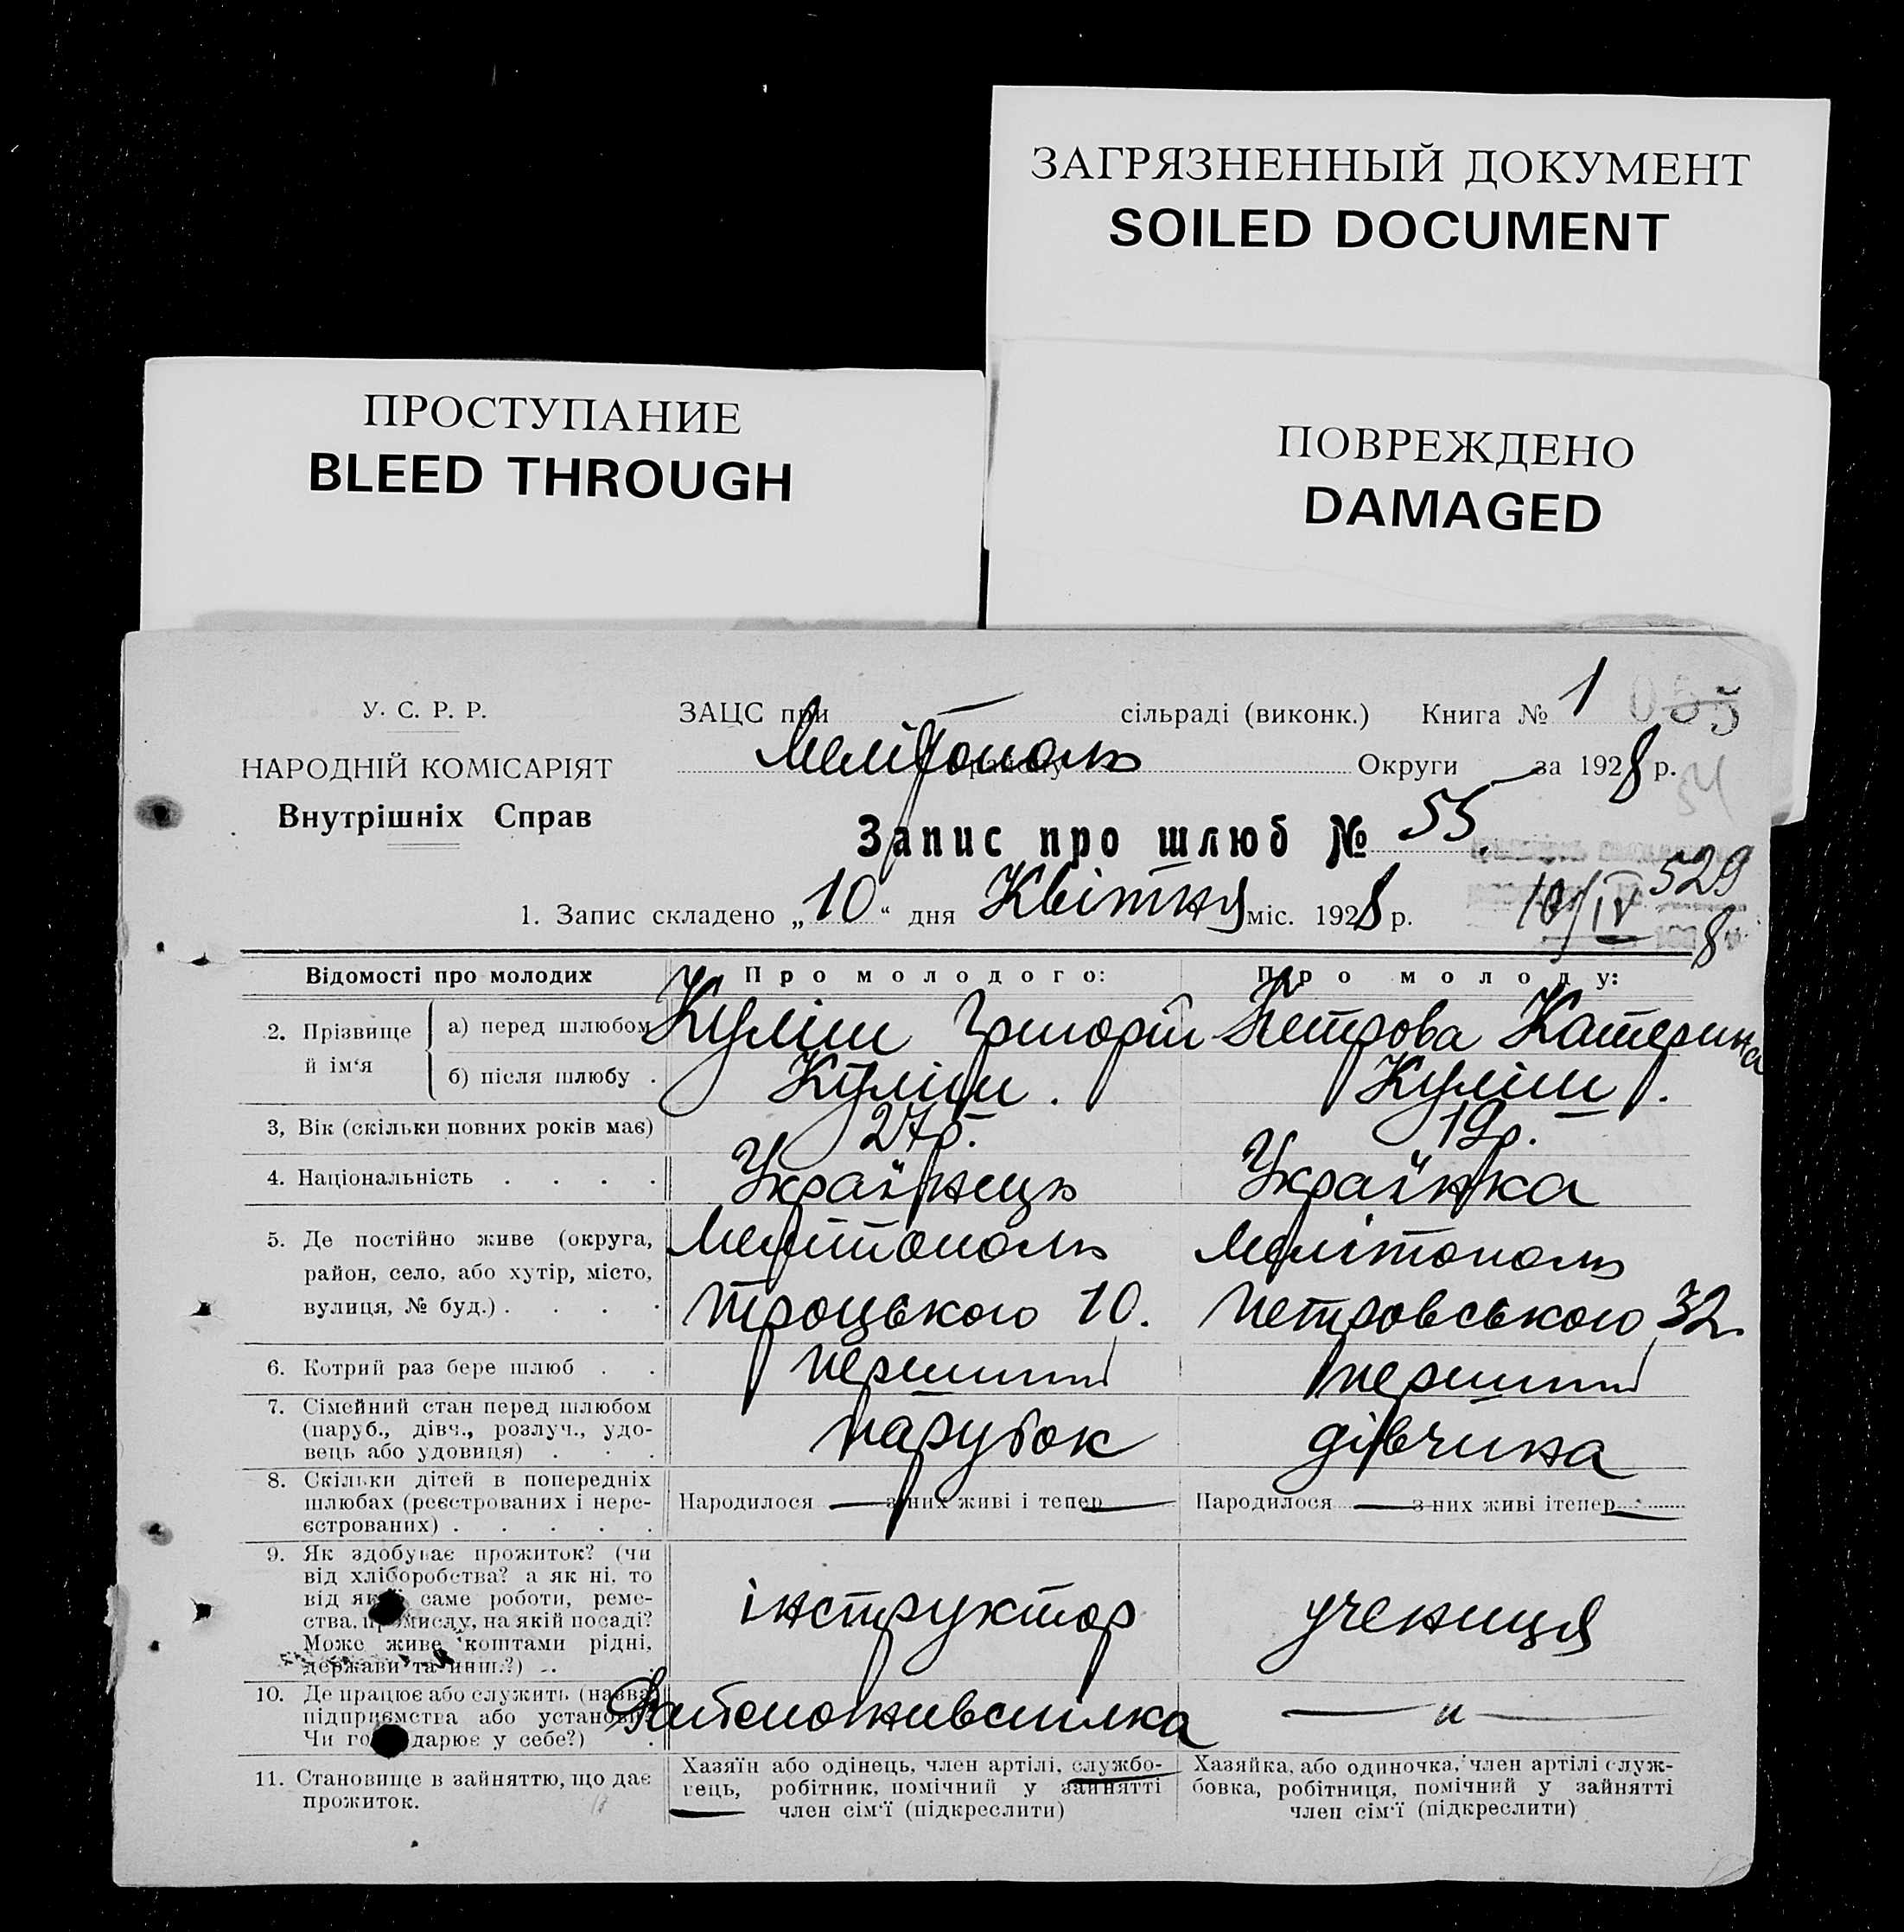 ЗАГРЯЗНЕННЫЙ ДОКУМЕНТ
SOILED DOCUMENT
ПРОСТУПАНИЕ
BLEED THROUGH
ПОВРЕЖДЕНО
DAMAGED
У. С. Р. Р.
НАРОДНІЙ КОМІСАРІЯТ
Внутрішніх Справ
ЗАЦС при — сільраді (виконк.) Книга № 1
Мелітополь району Округи за 1928 р.
Запис про шлюб № 55.
529
1. Запис складено „10“ дня Квітня міс. 1928 р.
10/IV 8
Відомості про молодих Про молодого: Про молоду:
2. Прізвище й ім‘я
а) перед шлюбом Куліш Григорій Петрова Катерина
б) після шлюбу . Куліш . Куліш .
3, Вік (скільки повних років має) 27р. 19р.
4. Національність . . . . Українець Українка
5. Де постійно живе (округа, район, село, або хутір, місто, вулиця, № буд.) . . . .
Мелітополь Мелітополь
Троцького 10. Петровського 32
6. Котрий раз бере шлюб . . перший перший
7. Сімейний стан перед шлюбом
(паруб., дівч., розлуч., удо-
вець або удовиця) . . .
парубок дівчина
8. Скільки дітей в попередніх
шлюбах (реєстрованих і нере-
єстрованих) . . . . .
Народилося — з них живі і тепер — Народилося — з них живі ітепер —
9. Як здобуває прожиток? (чи
від хліборобства? а як ні, то
від якої саме роботи, реме-
ства, промислу, на якій посаді?
Може живе коштами рідні,
держави та инш.?) ..
інструктор учениця
10. Де працює або служить (назва
підприємства або установи?
Чи господарює у себе?) .
Райспоживспілка — " —
11. Становище в зайняттю, що дає
прожиток.
Хазяїн або одінець, член артілі, службо-
вець, робітник, помічний у зайнятті
член сім‘ї (підкреслити)
Хазяйка, або одиночка, член артілі служ-
бовка, робітниця, помічний у зайнятті
член сім‘ї (підкреслити)